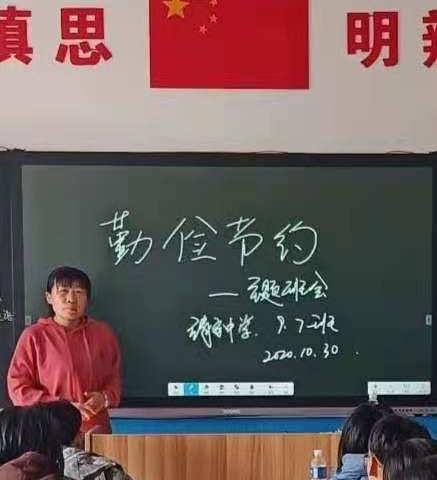 慎思
明辨
勤俭节约
—主题班会
中学. 9.7班
2020.10.30.